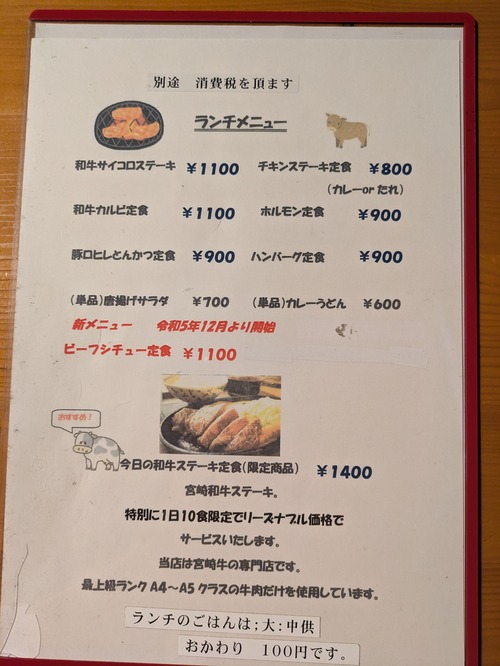 別途 消費税を頂ます
ランチメニュー
和牛サイコロステーキ ￥1100 チキンステーキ定食 ￥800
(カレーor たれ)
和牛カルビ定食 ￥1100 ホルモン定食 ￥900
豚ロヒレとんかつ定食 ￥900 ハンバーグ定食 ￥900
(単品)唐揚げサラダ ￥700 (単品)カレーうどん ￥600
新メニュー 令和5年12月より開始
ビーフシチュー定食 ￥1100
おすすめ!
今日の和牛ステーキ定食(限定商品) ￥1400
宮崎和牛ステーキ。
特別に1日10食限定でリーズナブル価格で
サービスいたします。
当店は宮崎牛の専門店です。
最上級ランクA4～A5クラスの牛肉だけを使用しています。
ランチのごはんは;大:中供
おかわり 100円です。